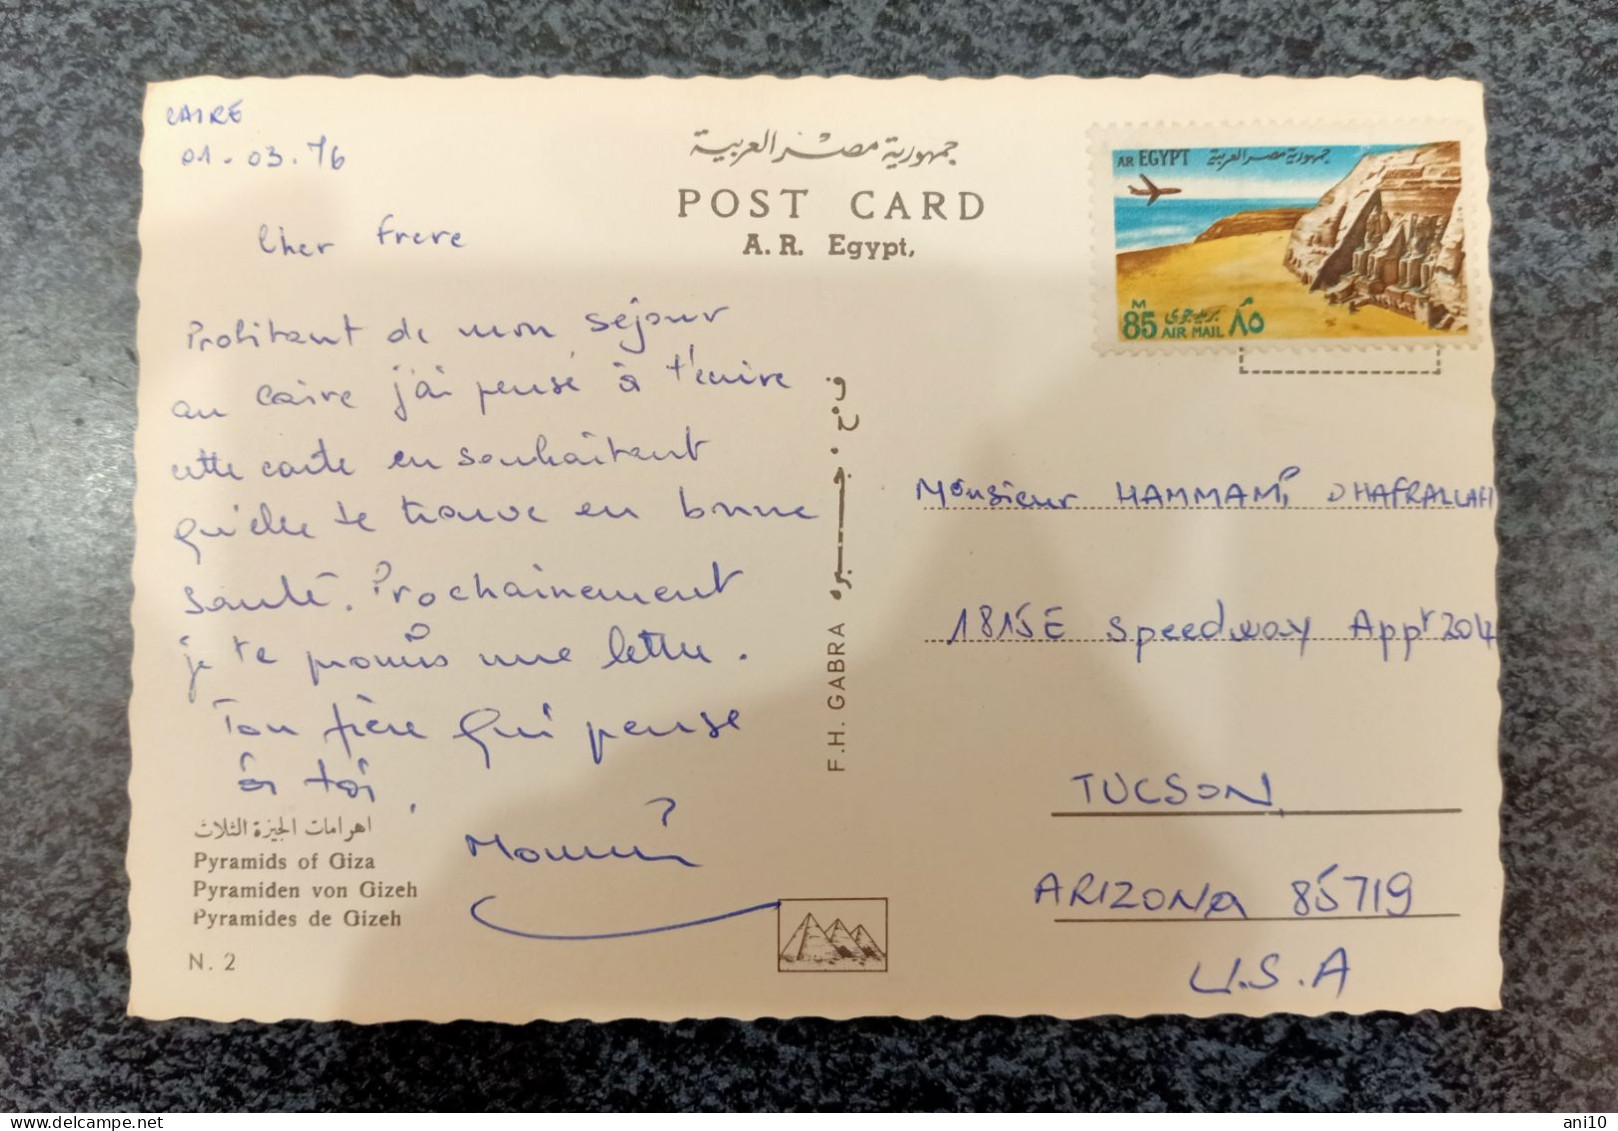 CAIRE
01-03.76
Cher Frere
Profitant de mon séjour
au Caire j'ai pensé à t'ecrire
cette carte en souhaitant
qu'elle te trouve en bonne
santé. Prochainement
je te promis une lettre.
Ton frère qui pense
à toi,
اهرامات الجيزة الثلاث
Pyramids of Giza
Pyramiden von Gizeh
Pyramides de Gizeh
N. 2
جمهورية مصر العربية
POST CARD
A. R. Egypt,
ف . ح . جبره
F.H. GABRA
AR EGYPT جمهورية مصر العربية
M
85 بريد جوى ٨٥
AIR MAIL
Monsieur HAMMAMI DHAFRALLAH
1815E Speedway Appt 204
TUCSON,
ARIZONA 85719
U.S.A
ani10